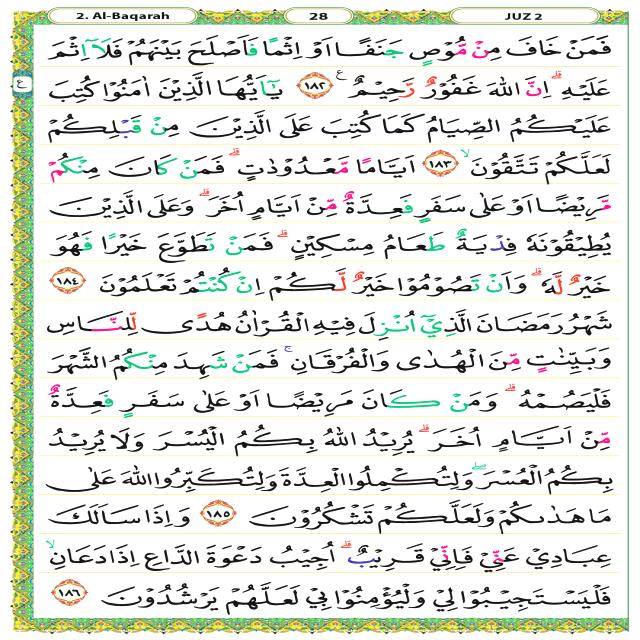 2. Al-Baqarah 28 JUZ 2
فَمَنْ خَافَ مِنْ مُّوْصٍ جَنَفًا اَوْ اِثْمًا فَاَصْلَحَ بَيْنَهُمْ فَلَآ اِثْمَ
عَلَيْهِ ۗ اِنَّ اللّٰهَ غَفُوْرٌ رَّحِيْمٌ ࣖ ١٨٢ يٰٓاَيُّهَا الَّذِيْنَ اٰمَنُوْا كُتِبَ
ع
عَلَيْكُمُ الصِّيَامُ كَمَا كُتِبَ عَلَى الَّذِيْنَ مِنْ قَبْلِكُمْ
لَعَلَّكُمْ تَتَّقُوْنَ ۙ ١٨٣ اَيَّامًا مَّعْدُوْدٰتٍ ۗ فَمَنْ كَانَ مِنْكُمْ
مَّرِيْضًا اَوْ عَلٰى سَفَرٍ فَعِدَّةٌ مِّنْ اَيَّامٍ اُخَرَ ۗ وَعَلَى الَّذِيْنَ
يُطِيْقُوْنَهٗ فِدْيَةٌ طَعَامُ مِسْكِيْنٍ ۗ فَمَنْ تَطَوَّعَ خَيْرًا فَهُوَ
خَيْرٌ لَّهٗ ۗ وَاَنْ تَصُوْمُوْا خَيْرٌ لَّكُمْ اِنْ كُنْتُمْ تَعْلَمُوْنَ ١٨٤
شَهْرُ رَمَضَانَ الَّذِيْٓ اُنْزِلَ فِيْهِ الْقُرْاٰنُ هُدًى لِّلنَّاسِ
وَبَيِّنٰتٍ مِّنَ الْهُدٰى وَالْفُرْقَانِ ۚ فَمَنْ شَهِدَ مِنْكُمُ الشَّهْرَ
فَلْيَصُمْهُ ۗ وَمَنْ كَانَ مَرِيْضًا اَوْ عَلٰى سَفَرٍ فَعِدَّةٌ
مِّنْ اَيَّامٍ اُخَرَ ۗ يُرِيْدُ اللّٰهُ بِكُمُ الْيُسْرَ وَلَا يُرِيْدُ
بِكُمُ الْعُسْرَ ۖ وَلِتُكْمِلُوا الْعِدَّةَ وَلِتُكَبِّرُوا اللّٰهَ عَلٰى
مَا هَدٰىكُمْ وَلَعَلَّكُمْ تَشْكُرُوْنَ ١٨٥ وَاِذَا سَاَلَكَ
عِبَادِيْ عَنِّيْ فَاِنِّيْ قَرِيْبٌ ۗ اُجِيْبُ دَعْوَةَ الدَّاعِ اِذَا دَعَانِ ۙ
فَلْيَسْتَجِيْبُوْا لِيْ وَلْيُؤْمِنُوْا بِيْ لَعَلَّهُمْ يَرْشُدُوْنَ ١٨٦